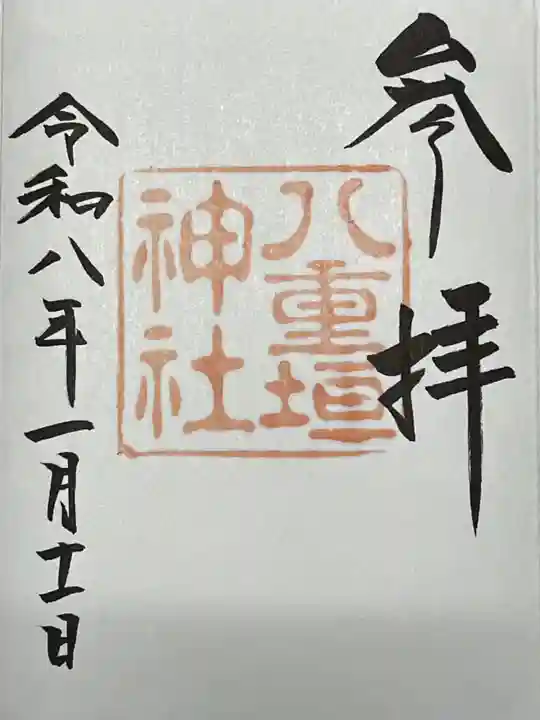 参拝
八重垣
神社
令和八年一月十一日